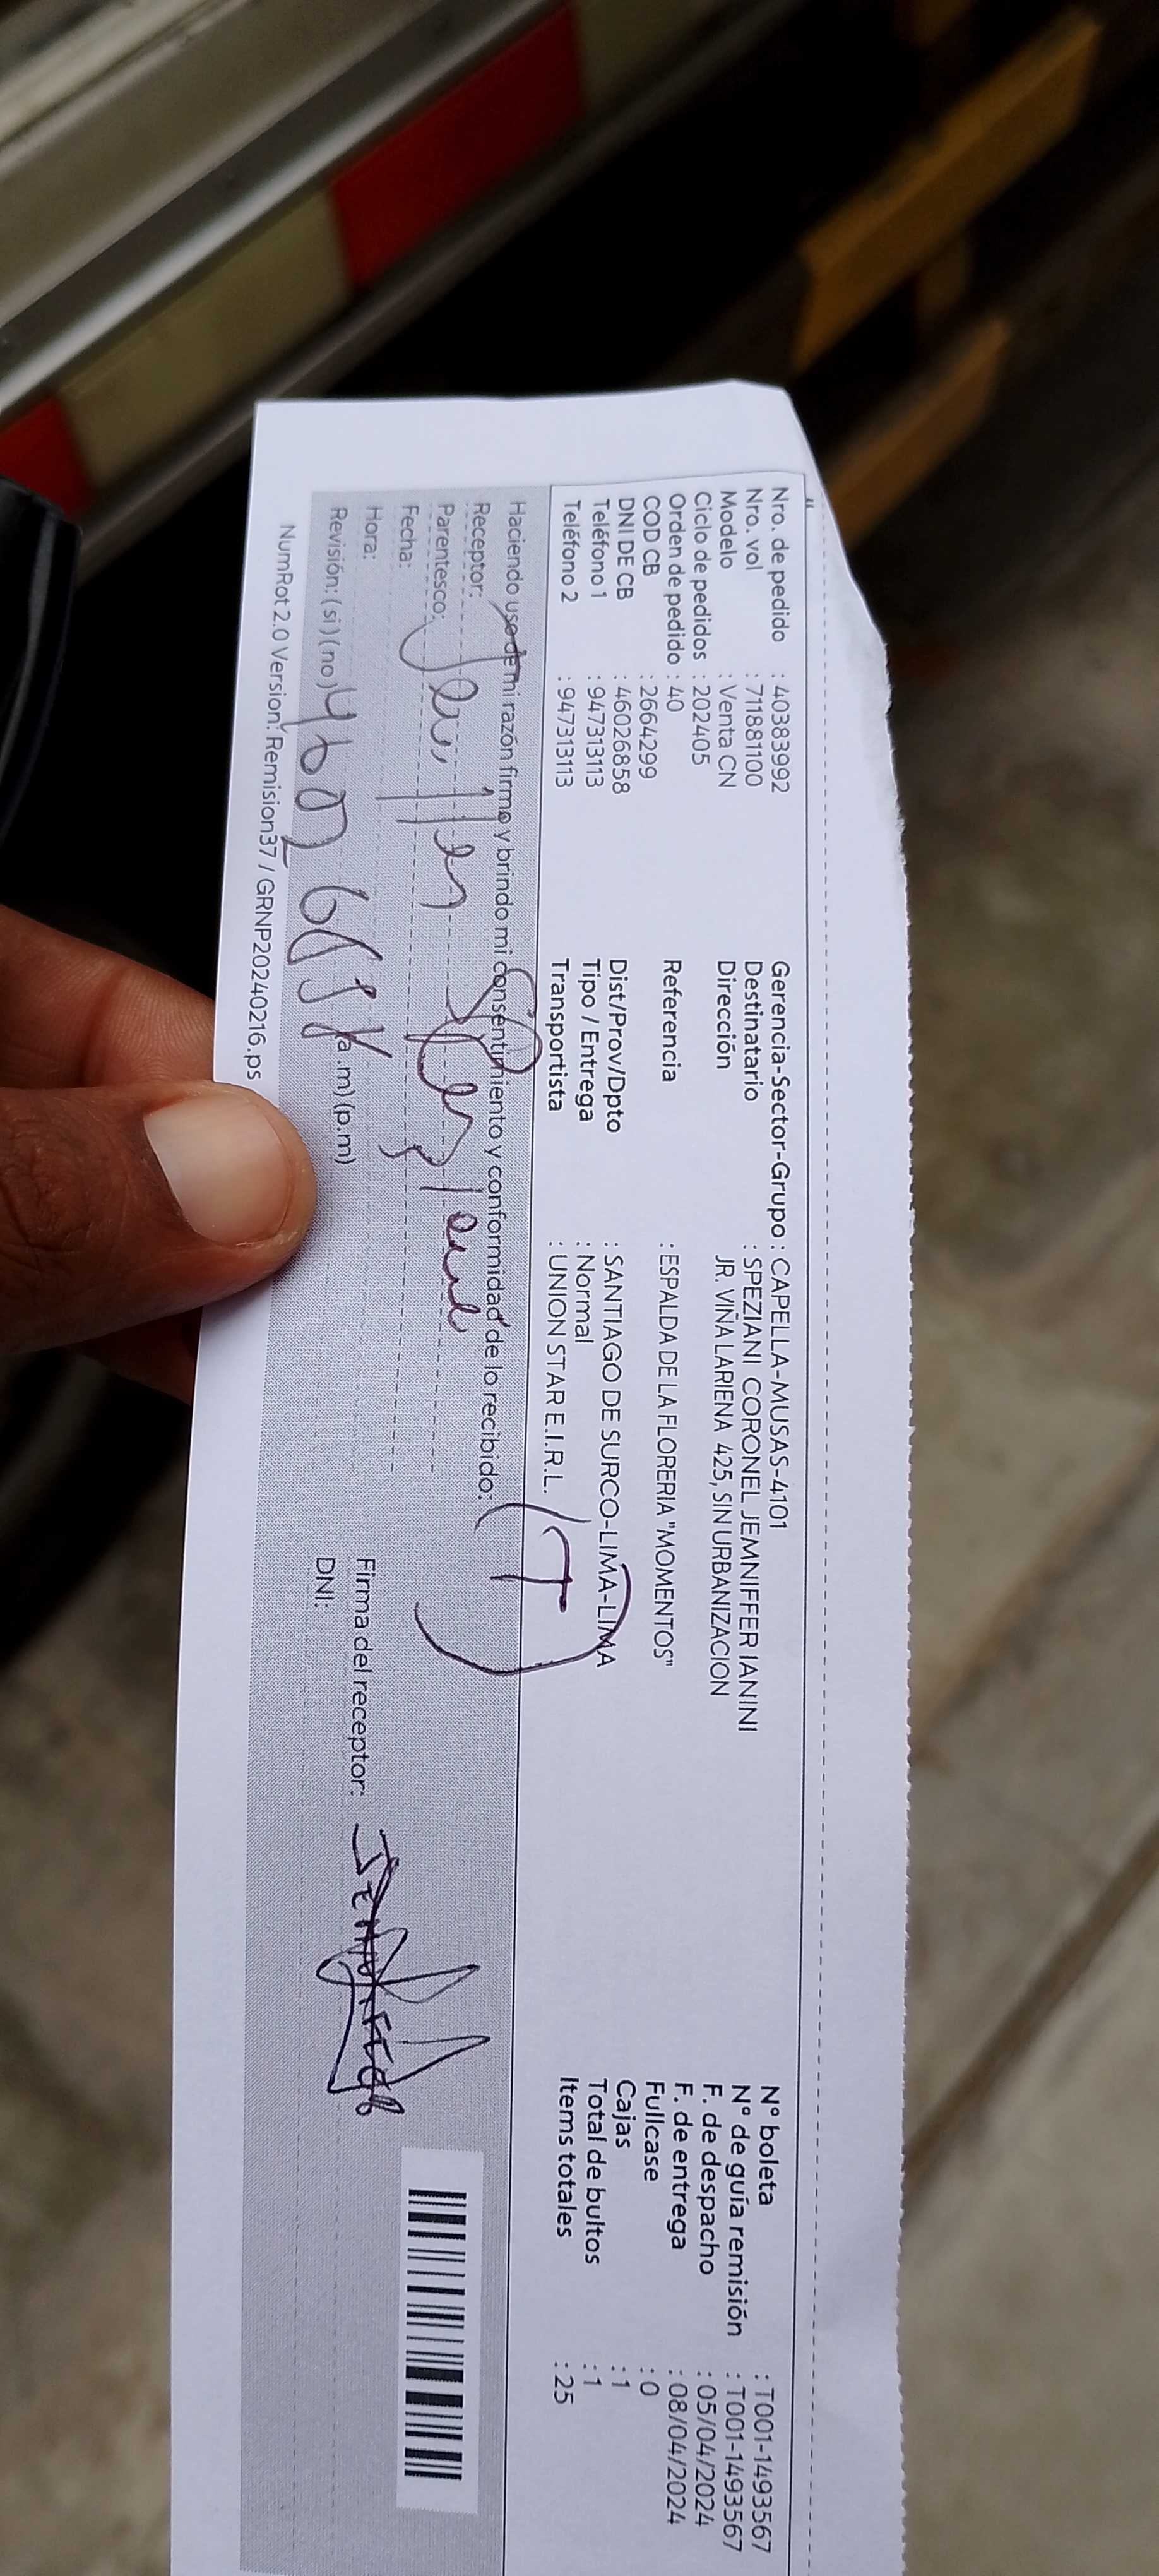 Nro. de pedido : 40383992
Nro. vol : 711881100
Modelo : Venta CN
Ciclo de pedidos : 202405
Orden de pedido : 40
COD CB : 2664299
DNI DE CB : 46026858
Teléfono 1 : 947313113
Teléfono 2 : 947313113
Gerencia-Sector-Grupo : CAPELLA-MUSAS-4101
Destinatario : SPEZIANI CORONEL JEMNIFFER IANINI
Dirección JR. VIÑA LARIENA 425, SIN URBANIZACION
Referencia : ESPALDA DE LA FLORERIA "MOMENTOS"
Dist/Prov/Dpto : SANTIAGO DE SURCO-LIMA-LIMA
Tipo / Entrega : Normal
Transportista : UNION STAR E.I.R.L.
N° boleta : T001-1493567
N° de guía remisión : T001-1493567
F. de despacho : 05/04/2024
F. de entrega : 08/04/2024
Fullcase : 0
Cajas : 1
Total de bultos : 1
Items totales : 25
Haciendo uso de mi razón firmo y brindo mi consentimiento y conformidad de lo recibido:
(T)
Receptor:
Parentesco:
Fecha:
Hora:
Revisión: (si) (no) (a.m) (p.m)
Firma del receptor:
DNI:
NumRot 2.0 Version: Remision37 / GRNP20240216.ps